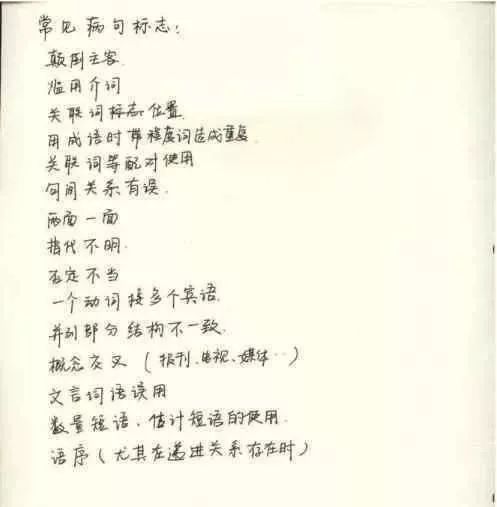 常见病句标志：
颠倒主客
滥用介词
关联词标志位置
用成语时带程度词造成重复
关联词等配对使用
句间关系有误.
两面一面
指代不明.
否定不当
一个动词接多个宾语.
并列部分结构不一致.
概念交叉（报刊、电视、媒体…）
文言词语误用
数量短语、估计短语的使用.
语序（尤其在递进关系存在时）